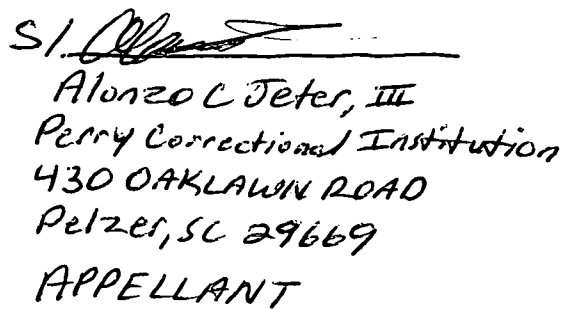 S/.
Alonzo C Jeter, III
Perry Correctional Institution
430 OAKLAWN ROAD
Pelzer, SC 29669
APPELLANT